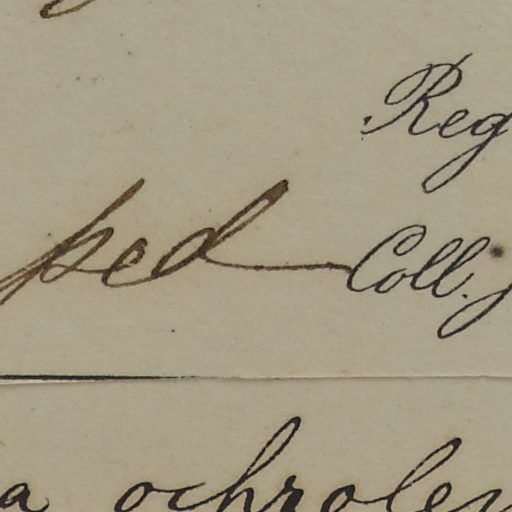 Reg
ped Coll.
a ochroleu